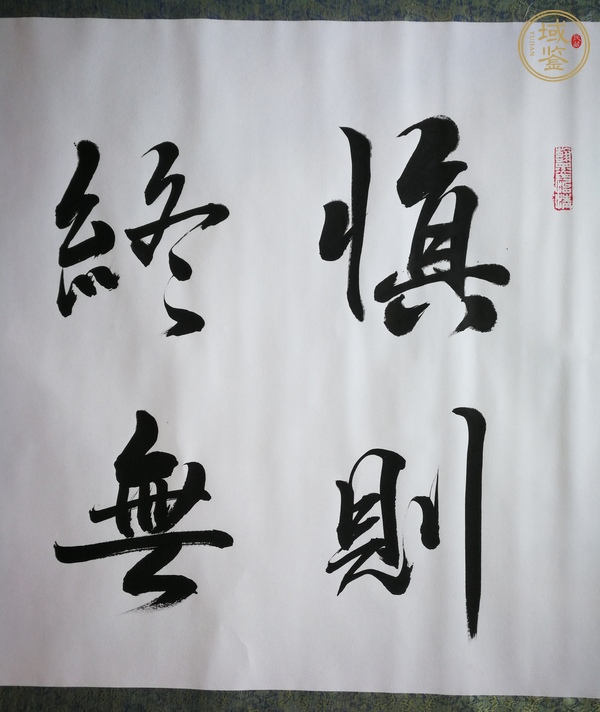 慎則
終無
域鉴
YUJIAN